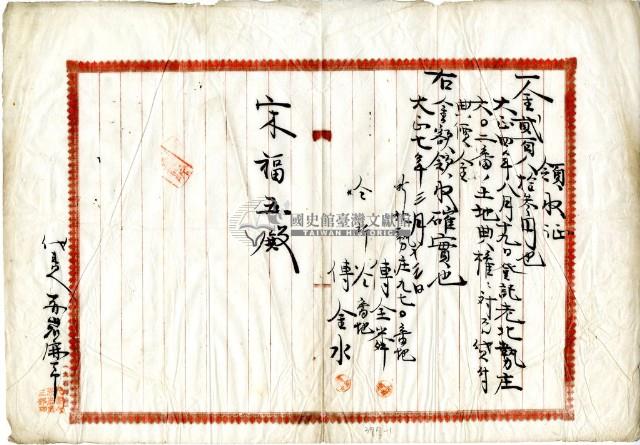 領收証
一金貳百八拾参円也
大正四年八月十九日登記老北勢庄
六〇二番ノ土地典權ニ対スル貸付
典價金
右金額領收確實也
大正七年三月
庄九七〇番地
傳金舜
仝所仝番地
傳金水
宋福五殿
代書人
國史館臺灣文獻館
TAIWAN HISTORICA